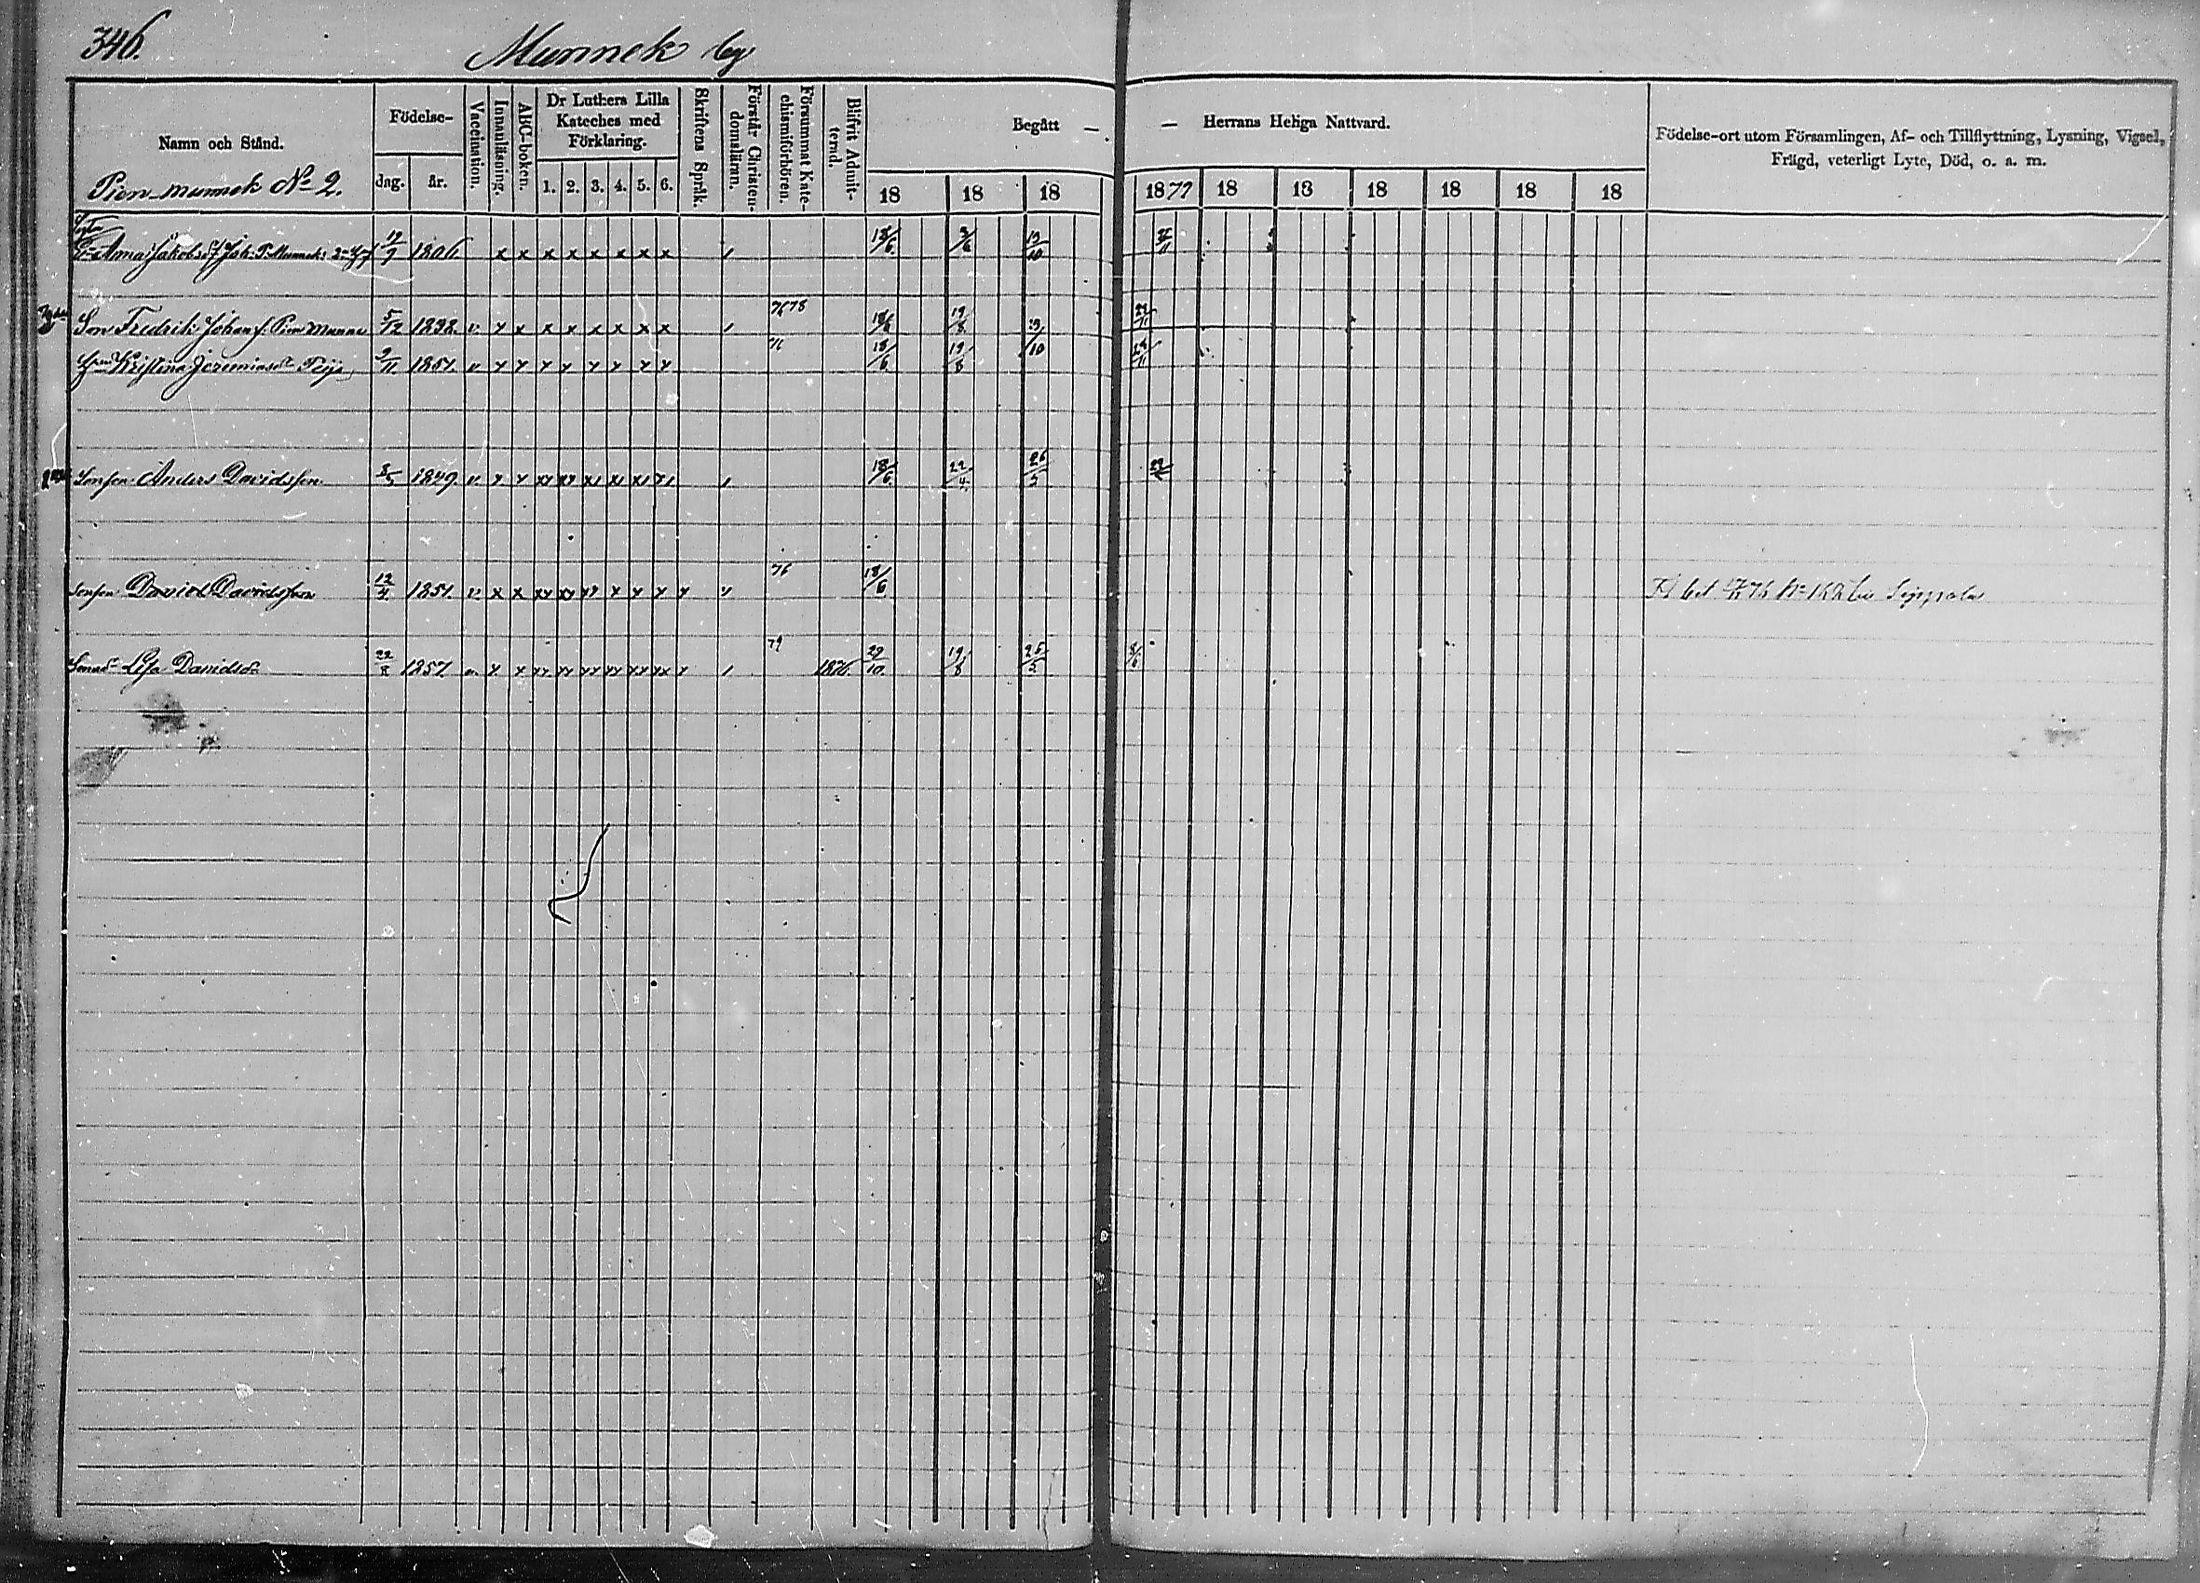 346.
Munnek by
Namn och Stånd.
Födelse-
dag. år.
Vaccination.
Innanläsning.
ABC-boken.
Dr Luthers Lilla Kateches med Förklaring.
1. 2. 3. 4. 5. 6.
Skriftens Språk.
Förstår Christendomsläran.
Försummat Katechismiförhören.
Blifvit Admitterad.
Begått — — Herrans Heliga Nattvard.
18 18 18 1879 18 18 18 18 18 18
Födelse-ort utom Församlingen, Af- och Tillflyttning, Lysning, Vigsel,
Frägd, veterligt Lyte, Död, o. a. m.
Pien-munnek No 2.
Anna Jakobsdr 12/9 1806 x x x x x x x x 18/6 3/6 13/10
Son Fredrik Johansf. Pien Munne 5/12 1832 v. x x x x x x x x 76 78 18/6 19/8
Kristina Jeremiasdr 9/11 1851 v x x x x x x x x 76 18/6 19/8
Sonson Anders Davidsson 1849 v. 18/6 22/4 26/5
Sonson David Davidsson 12/4 1851. v. x x 76 18/6
Fl bet No 122 bis Sippola
Sonad. Lisa Davidsdr 22/8 1857. 79 1876. 29/10. 19/8 25/5 8/6